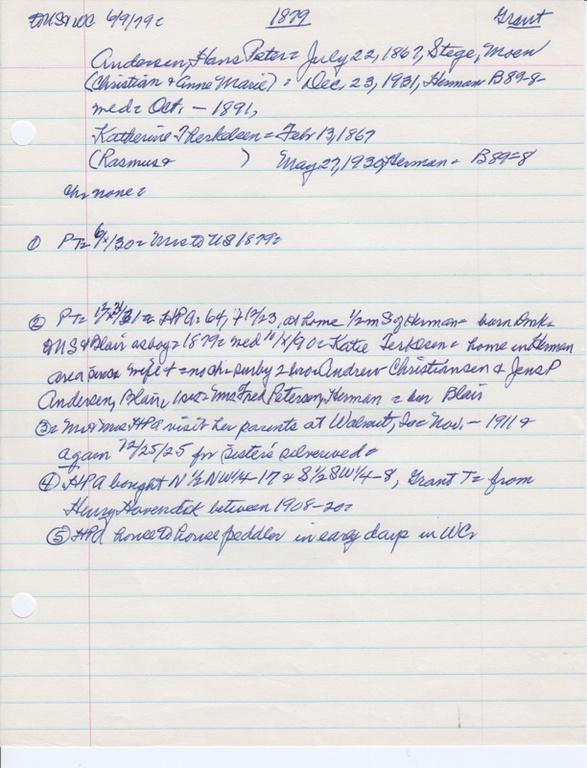 EMUS & WC 6/9/79 = 1879 Grant
Andersen, Hans Peter = July 22, 1867, Stege, Moen
(Christian & Anne Marie) = Dec. 23, 1931, Herman = B89-8
med = Oct. - 1891,
Katherine Therkelsen = Feb 13, 1867
(Rasmus & ) May 27, 1930, Herman = B89=8
Ch = none =
① PT = 6/x/30 = Mrs to US 1879 =
② PT = 12/31/31 = HPA = 64, + 12/23, at home 1/2 m S of Herman = born Dmk =
EMUS & Blair as boy = 1879 = med 10/x/90 = Katie Terkesen = home in Herman
area since wife + = no ch = surby 2 bro = Andrew Christiansen & Jens P
Andersen, Blair, 1 sis = Mrs Fred Peterson, Herman = bur Blair
③ = Mr & Mrs HPA visit her parents at Walnut, Ia = Nov. - 1911 &
again 12/25/25 for sister's silverwed =
④ HPA bought N 1/2 NW 1/4 - 17 & S 1/2 SW 1/4 - 8, Grant T = from
Henry Havendick between 1908-20 =
⑤ HPA house to house peddler in early days in WC =